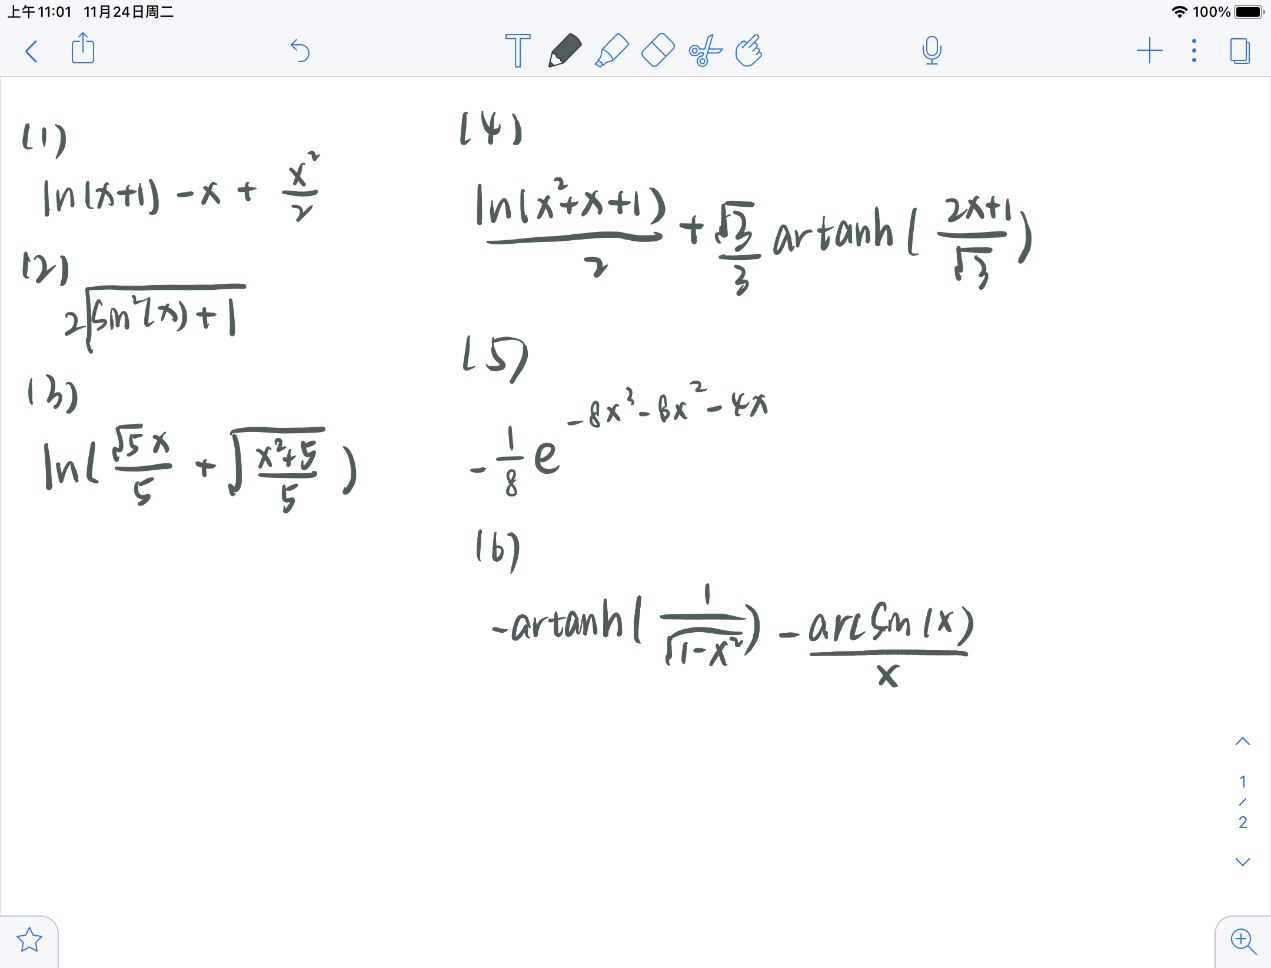 上午11:01 11月24日周二
100%
T
(1)
ln(x+1) - x + x²/2
(2)
2√(sin²(x) + 1)
(3)
ln( √5 x/5 + √((x²+5)/5) )
(4)
ln(x²+x+1)/2 + √3/3 artanh( (2x+1)/√3 )
(5)
-1/8 e^(-8x³-6x²-4x)
(6)
-artanh( 1/√(1-x²) ) - arcsin(x)/x
1
/
2